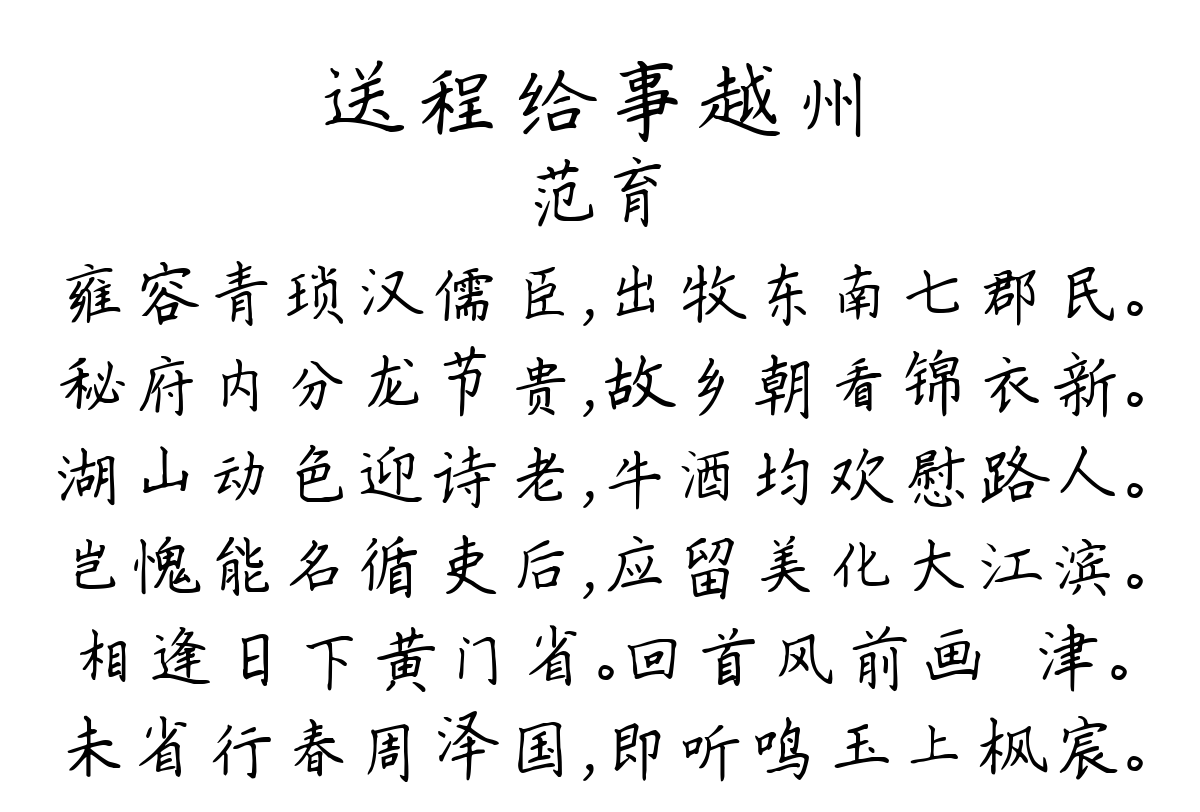 送程给事越州
范育
雍容青琐汉儒臣,出牧东南七郡民。
秘府内分龙节贵,故乡朝看锦衣新。
湖山动色迎诗老,牛酒均欢慰路人。
岂愧能名循吏后,应留美化大江滨。
相逢日下黄门省。回首风前画 津。
未省行春周泽国,即听鸣玉上枫宸。